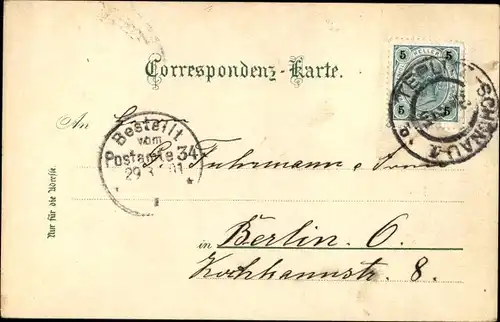 Correspondenz-Karte.
5 HELLER 5
5 5
TEPLITZ
SCHÖNAU 1
An
Bestellt
vom
Postamte 34
29.3. 01
Fuhrmann
in Berlin. O.
Kochhannstr. 8.
Nur für die Adresse.